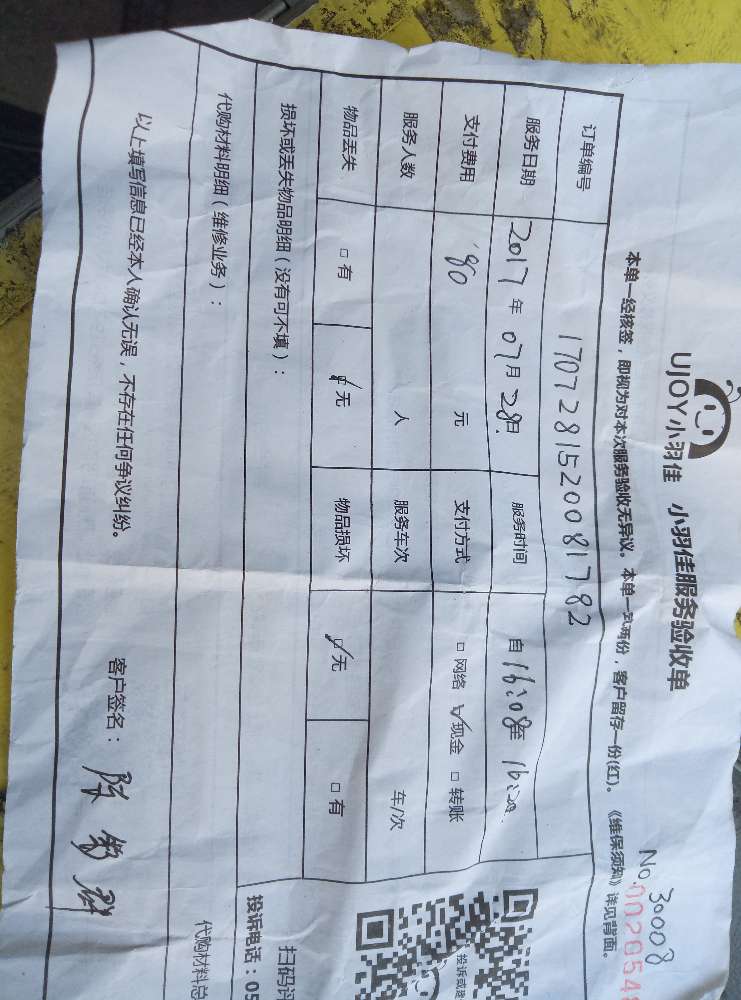 UJOY小羽佳 小羽佳服务验收单
No. 30008
本单一经核签，即视为对本次服务验收无异议。本单一式两份，客户留存一份(红)。《维保须知》详见背面。
订单编号 1707281520081782
服务日期 2017年07月28日 服务时间 自16:08至16:20
支付费用 80元 支付方式 □网络 ☑现金 □转账
服务人数 人 服务车次 车/次
物品丢失 □有 ☑无 物品损坏 ☑无 □有
损坏或丢失物品明细（没有可不填）：
代购材料明细（维修业务）：
代购材料总
以上填写信息已经本人确认无误，不存在任何争议纠纷。 客户签名：
扫码评
投诉电话：05